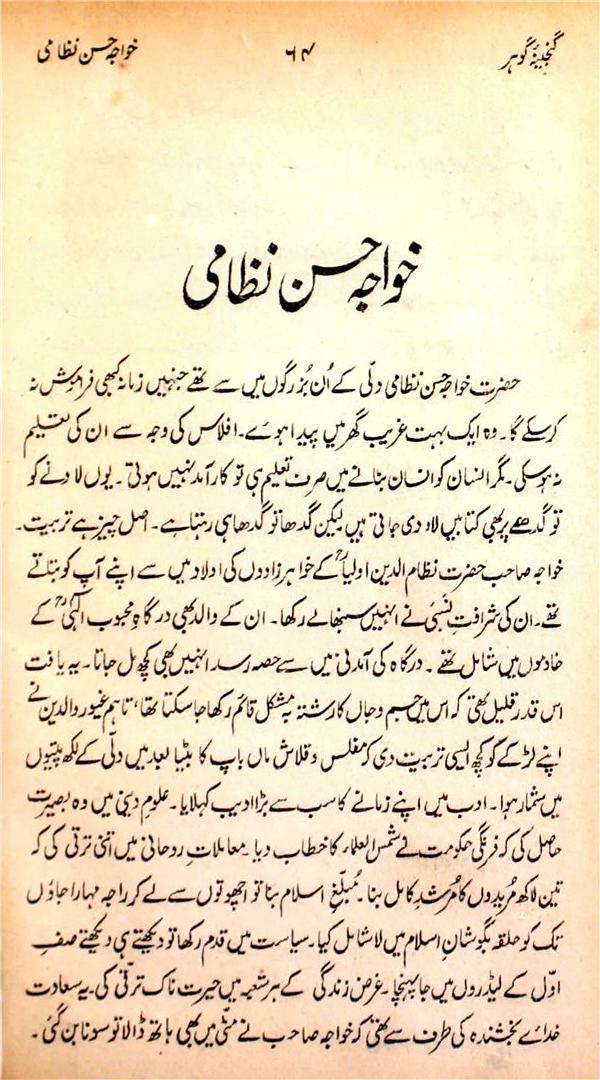 گنجینۂ گوہر ۶۴ خواجہ حسن نظامی
خواجہ حسن نظامی
حضرت خواجہ حسن نظامی دلّی کے اُن بزرگوں میں سے تھے جنہیں زمانہ کبھی فراموش نہ
کر سکے گا۔ وہ ایک بہت غریب گھر میں پیدا ہوے۔ افلاس کی وجہ سے ان کی تعلیم
نہ ہوسکی۔ مگر انسان کو انسان بنانے میں صرف تعلیم ہی تو کارآمد نہیں ہوتی۔ یوں لادنے کو
تو گدھے پر بھی کتابیں لاد دی جاتی ہیں لیکن گدھا تو گدھا ہی رہتا ہے۔ اصل چیز ہے تربیت۔
خواجہ صاحب حضرت نظام الدین اولیاؒ کے خواہرزادوں کی اولاد میں سے اپنے آپ کو بتاتے
تھے۔ ان کی شرافتِ نسبی نے انہیں سنبھالے رکھا۔ ان کے والد بھی درگاہِ محبوب الٰہیؒ کے
خادموں میں شامل تھے۔ درگاہ کی آمدنی میں سے حصہ رسد انہیں بھی کچھ مل جاتا۔ یہ یافت
اس قدر قلیل تھی کہ اس میں جسم و جاں کا رشتہ بہ مشکل قائم رکھا جاسکتا تھا، تاہم غیور والدین نے
اپنے لڑکے کو کچھ ایسی تربیت دی کہ مفلس و قلاش ماں باپ کا بیٹا بعد میں دلّی کے لکھ پتیوں
میں شمار ہوا۔ ادب میں اپنے زمانے کا سب سے بڑا ادیب کہلایا۔ علومِ دینی میں وہ بصیرت
حاصل کی کہ فرنگی حکومت نے شمس العلماء کا خطاب دیا۔ معاملاتِ روحانی میں اتنی ترقی کی کہ
تین لاکھ مُریدوں کا مُرشدِ کامل بنا۔ مُبلّغِ اسلام بنا تو اچھوتوں سے لے کر راجہ مہاراجاؤں
تک کو حلقہ بگوشانِ اسلام میں لا شامل کیا۔ سیاست میں قدم رکھا تو دیکھتے ہی دیکھتے صفِ
اوّل کے لیڈروں میں جا پہنچا۔ غرض زندگی کے ہر شعبہ میں حیرت ناک ترقی کی۔ یہ سعادت
خداے بخشندہ کی طرف سے تھی کہ خواجہ صاحب نے مٹی میں بھی ہاتھ ڈالا تو سونا بن گئی۔